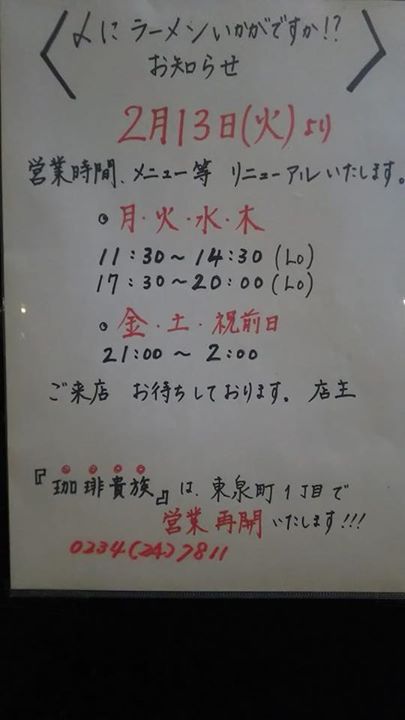 〆に ラーメン いかがですか!?
お知らせ
2月13日(火)より
営業時間、メニュー等 リニューアルいたします。
◎ 月・火・水・木
11:30〜14:30 (LO)
17:30〜20:00 (LO)
◎ 金・土・祝前日
21:00 〜 2:00
ご来店 お待ちしております。 店主
『珈琲貴族』は、東泉町1丁目で
営業再開いたします!!!
0234(24)7811